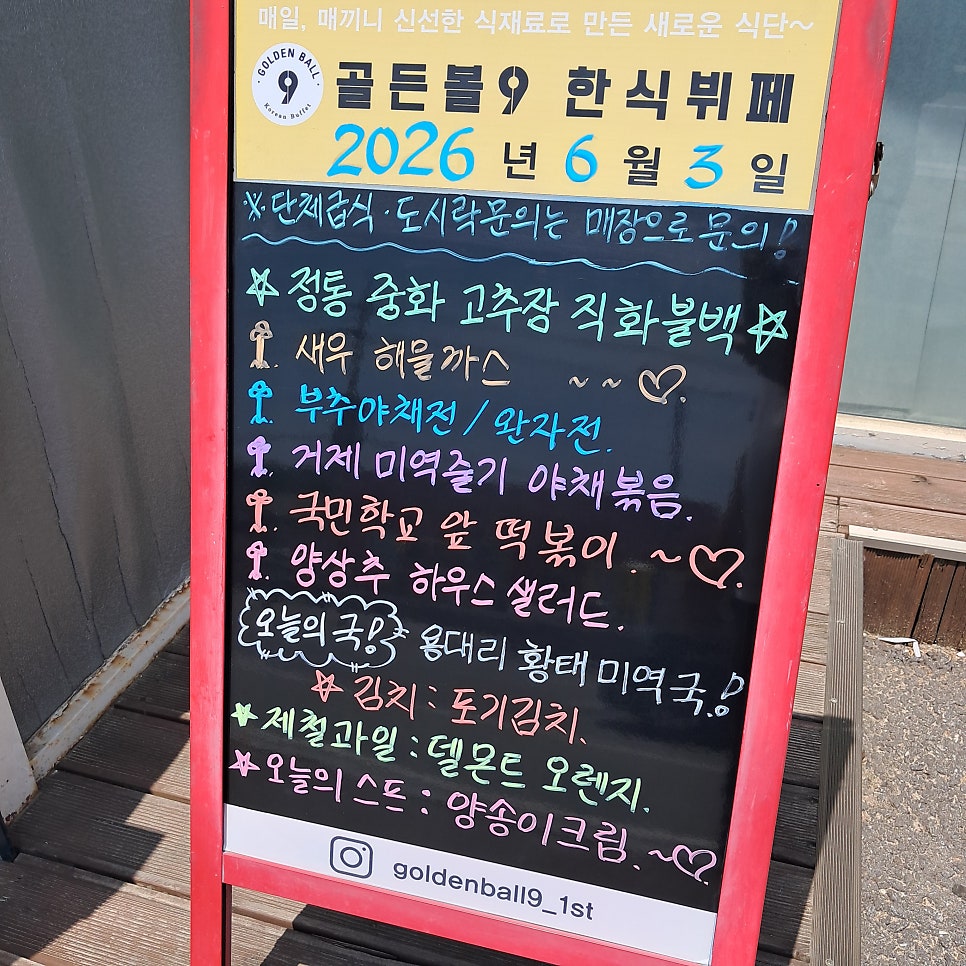 매일, 매끼니 신선한 식재료로 만든 새로운 식단~
GOLDEN BALL
9
Korean Buffet
골든볼9 한식뷔페
2026 년 6 월 3 일
※단체급식·도시락문의는 매장으로 문의!
☆ 정통 중화 고추장 직화불백 ☆
새우 해물까스 ~ ~ ♡.
부추야채전 / 완자전.
거제 미역줄기 야채볶음.
국민학교 앞 떡볶이. ~♡.
양상추 하우스 샐러드.
오늘의 국! 용대리 황태 미역국.!
☆ 김치 : 포기김치.
☆ 제철과일 : 델몬트 오렌지.
☆ 오늘의 스프 : 양송이크림. ~♡.
goldenball9_1st